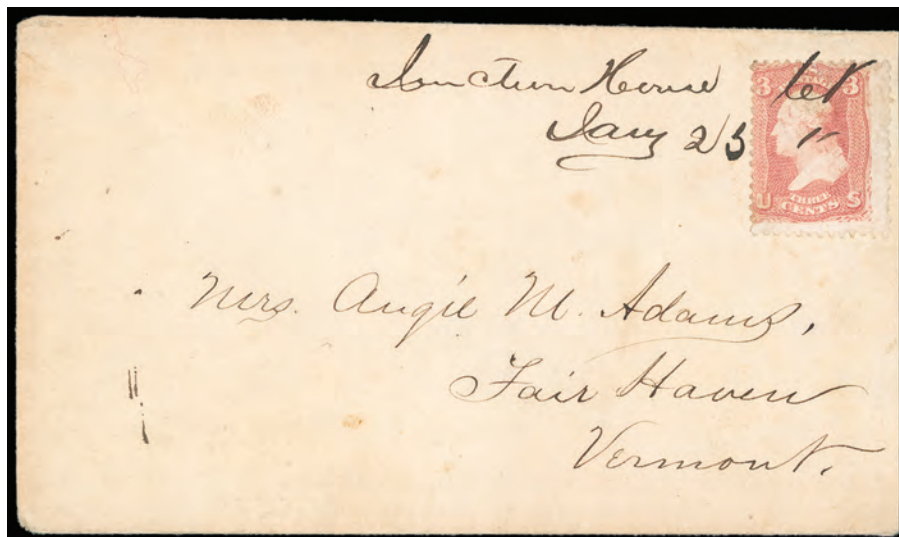 Junction House
Jany 25
3 3
U S
CENTS
Mrs. Angie M. Adams,
Fair Haven
Vermont.